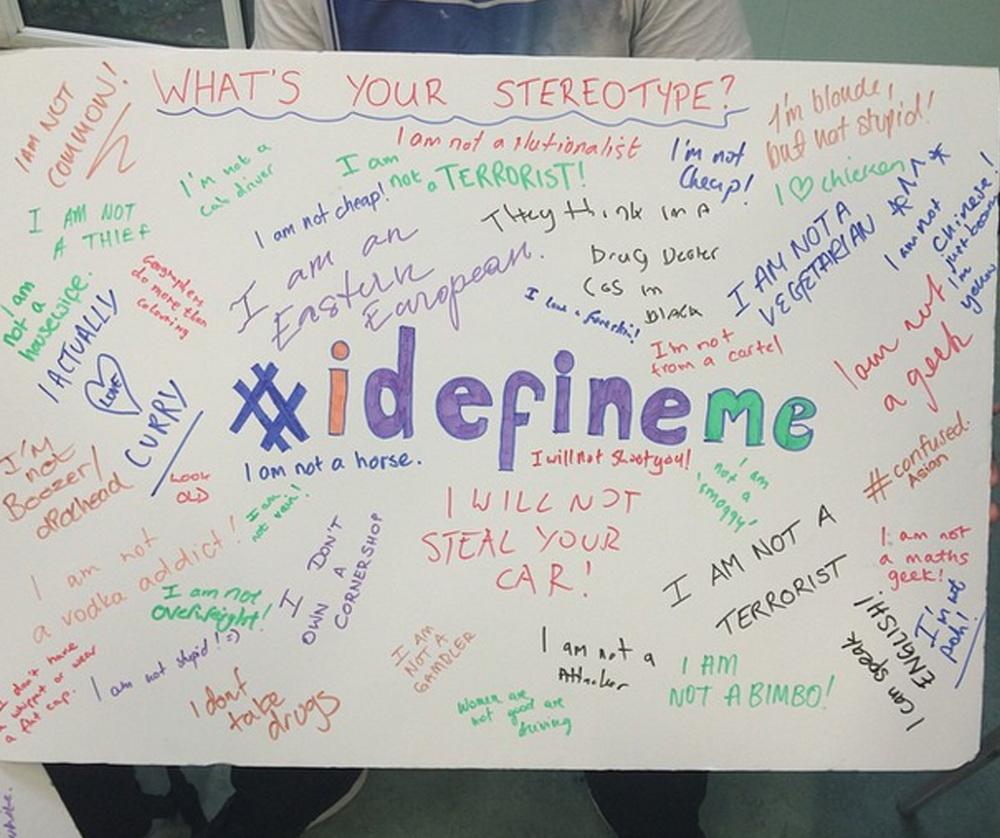 WHAT'S YOUR STEREOTYPE?
I AM NOT
COMMON!
I'm blonde,
but not stupid!
I am not a slutionalist
I'm not a
cab driver
I am
not a TERRORIST!
I'm not
Cheap!
I ♡ chicken
I AM NOT
A THIEF
I am not cheap!
They think im a
Drug Dealer
Cos im
Black
I AM NOT A
VEGETARIAN
I am not
Chinese!
just because
I'm
yellow
I am an
Eastern
European.
I am
not a
housewife.
Geographers
do more than
colouring
I love a
I'm not
from a cartel
I am not
a geek
I ACTUALLY
LOVE
CURRY
#idefineme
I am not a horse.
I will not shoot you!
I'm
not
Boozer/
LOOK
OLD
I am
not vain!
I am
not a
'smoggy'
#confused
Asian
I WILL NOT
STEAL YOUR
CAR!
I DON'T
OWN A
CORNERSHOP
I AM NOT A
TERRORIST
I am not
a maths
geek!
I am not
a vodka addict!
I am not
overweight!
I'm not
posh!
I can speak
ENGLISH!
I don't have
a whippet or wear
a flat cap.
I am not stupid! =)
I AM
NOT A
GAMBLER
I am not a
Attacker
I AM
NOT A BIMBO!
I dont
take
drugs
Women are
not good are
driving